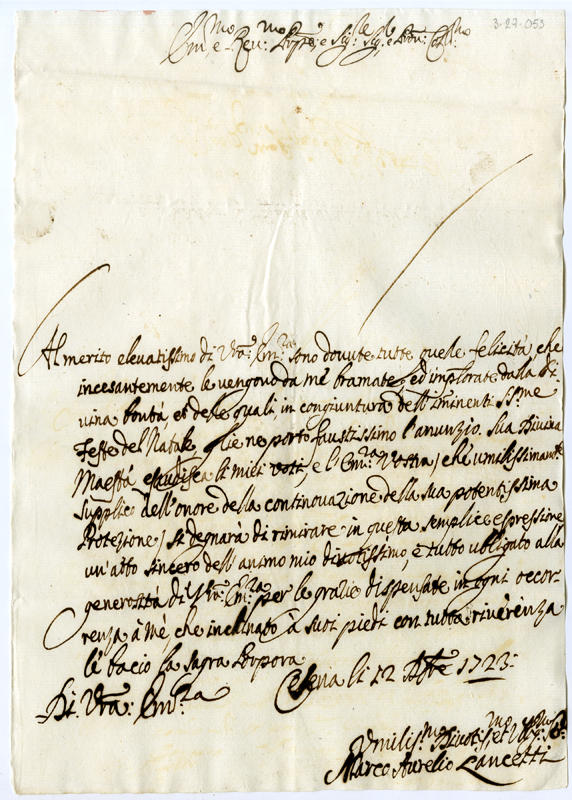 3-27-053
Em.mo e Rev.mo Prpe: e Sig:re Sig:re e Pron: Col.mo
Al merito elevatissimo di Vra: Em.za sono dovute tutte quele felicitá, che
incesantemente le vengono da mé bramate, ed implorate dalla di-
vina bontá, et dele quali, in congiuntura dell'iminenti SS.me
Feste del Natale, glie ne porto faustissimo l'anunzio. Sua Divina
Maestá esaudisca li miei voti, e l'Em.za Vostra / che umilissimamte
supplico dell'onore della continovazione della sua potentissima
Protezione / si degnará di rimirare in questa semplice espressione
un'atto sincero dell'animo mio divotissimo, e tutto ubligato alla
generositá di Vra: Em.za per le grazie dispensate in ogni occor-
renza á mé, che inclinato á suoi piedi con tutta riverenza
le bacio la sagra Porpora
Di Vra: Em.za Cesena li 22 Xbre 1723:
Vmilis.mo Divotis.mo et
Marco Aurelio Lancetti